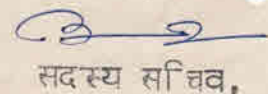 सदस्य सचिव.